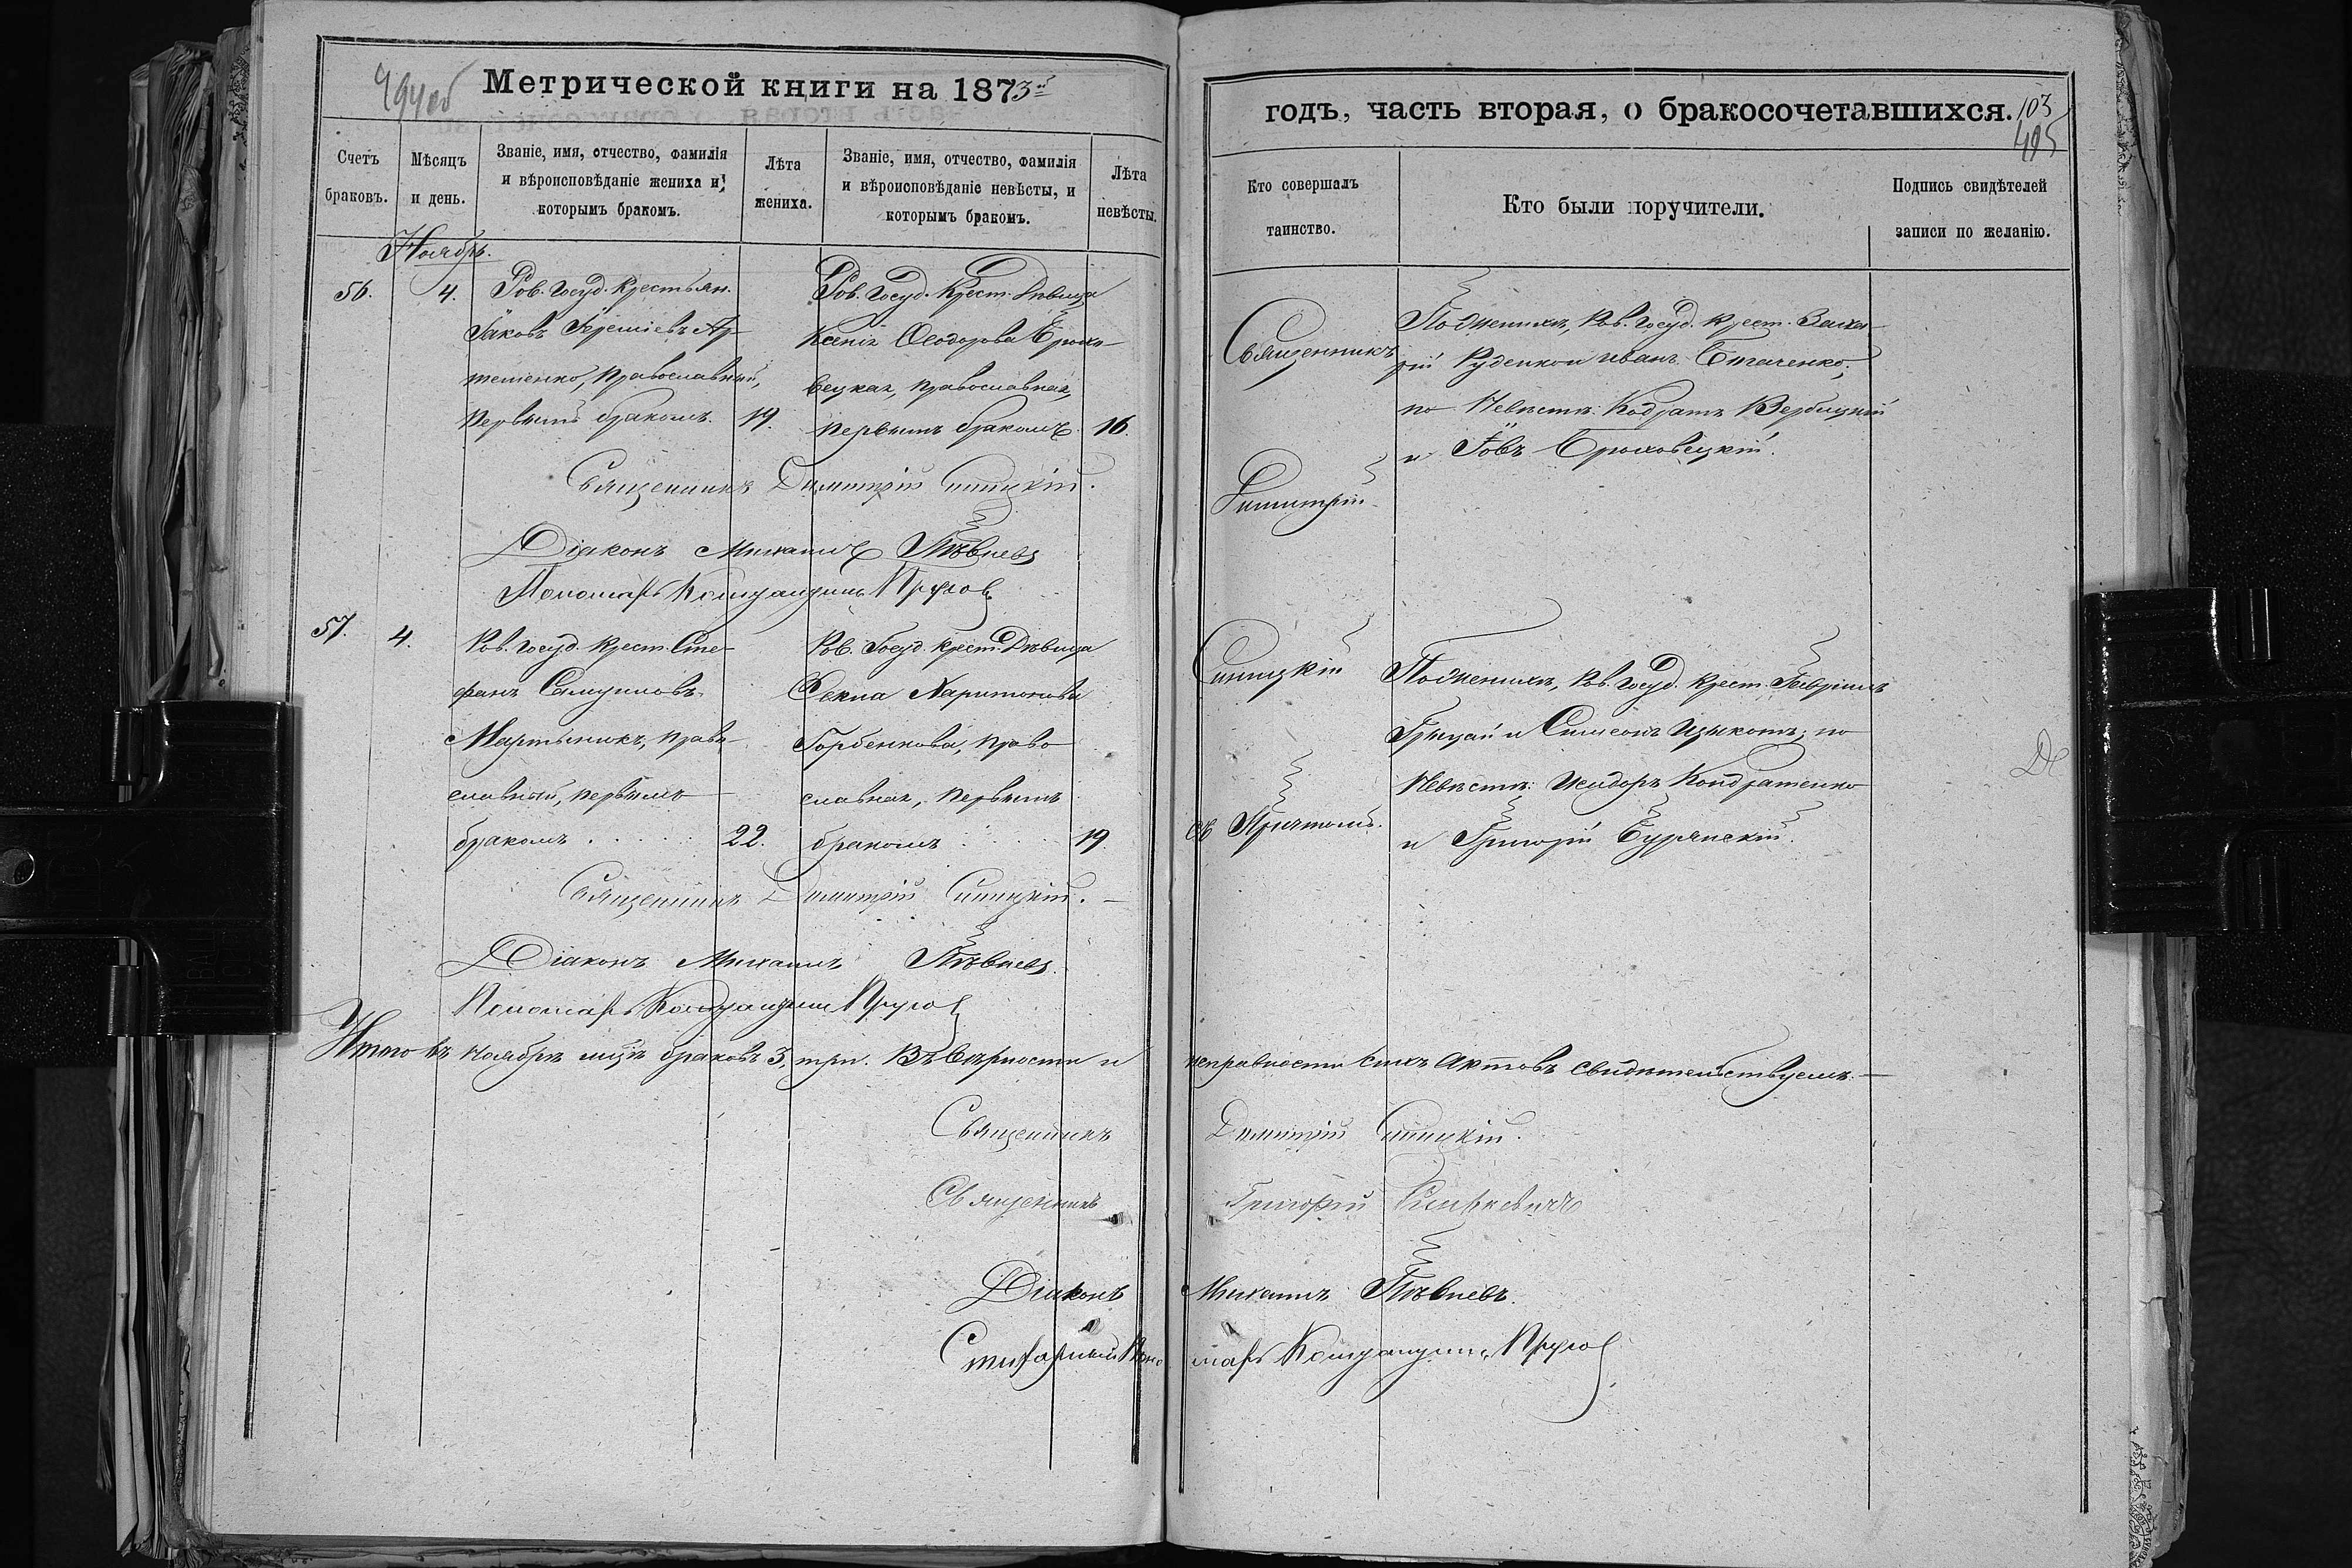 494об
Метрической книги на 1873й
Счетъ браковъ.
Мѣсяцъ и день.
Званіе, имя, отчество, фамилія и вѣроисповѣданіе жениха и которымъ бракомъ.
Лѣта жениха.
Званіе, имя, отчество, фамилія и вѣроисповѣданіе невѣсты, и которымъ бракомъ.
Лѣта невѣсты.
Ноябрь.
56. 4.
Ров. Госуд. Крестьян.
Іаковъ Іереміевъ Ар-
теменко, православный,
первымъ бракомъ. 19.
Ров. Госуд. Крест. Дѣвица
Ксенія Ѳеодорова Брюхо-
вецкая, православная,
первымъ бракомъ. 16.
Священникъ Димитрій Синицкій.
Діаконъ Михаилъ Пѣвневъ
Пономарь
57. 4.
Ров. Госуд. Крест. Сте-
фанъ Самуиловъ
Мартыникъ, право-
славный, первымъ
бракомъ . . . . . 22.
Ров. Госуд. Крест. Дѣвица
Ѳекла Харитонова
Горбенкова, право
славная, первымъ
бракомъ . . . . 19
Священникъ Димитрій Синицкій.
Діаконъ Михаилъ Пѣвневъ.
Пономарь
Итого въ Ноябрѣ мцѣ браковъ 3, три. Въ вѣрности и
Священникъ
Священникъ
Діаконъ
годъ, часть вторая, о бракосочетавшихся.
103
495
Кто совершалъ таинство.
Кто были поручители.
Подпись свидѣтелей записи по желанію.
Священникъ
Димитрій
Синицкій
съ Причтомъ.
По женихѣ, Ров. Госуд. Крест. Заха-
рій Руденко и Иванъ Ткаченко;
по Невѣстѣ: Кодратъ Вербицкій
и Іовъ Брюховецкій.
По женихѣ, Ров. Госуд. Крест. Гавріилъ
Грицай и Симеонъ; по
Невѣстѣ: Исидоръ Кондратенко
и Григорій Бурянскій.
исправности сихъ актовъ свидѣтельствуемъ.
Димитрій Синицкій.
Григорій
Михаилъ Пѣвневъ.